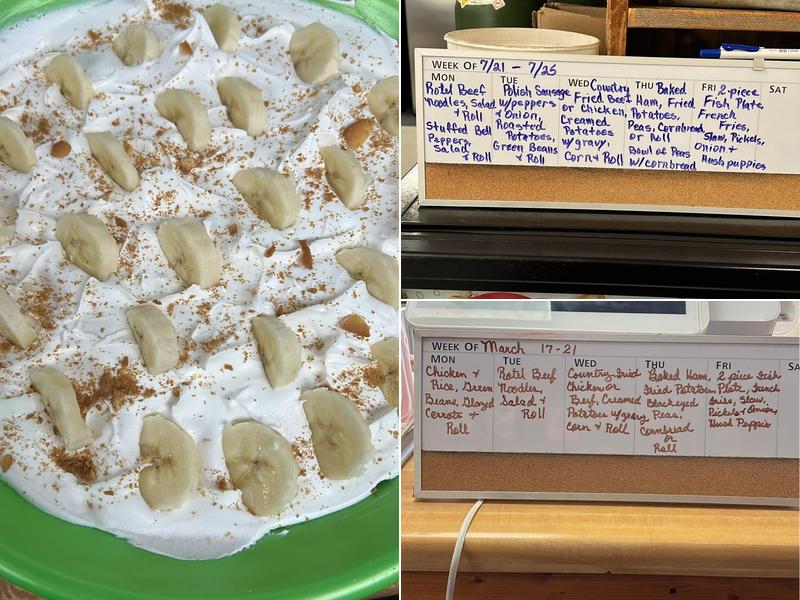 WEEK OF 7/21 - 7/25
MON
Rotel Beef
Noodles, Salad
+ Roll
Stuffed Bell
Peppers,
Salad
+ Roll
TUE
Polish Sausage
w/peppers
+ Onion,
Roasted
Potatoes,
Green Beans
+ Roll
WED Country
Fried Beef
or Chicken,
Creamed
Potatoes
w/gravy,
Corn + Roll
THU Baked
Ham, Fried
Potatoes,
Peas, Cornbread
or Roll
Bowl of Peas
w/cornbread
FRI 2-piece
Fish Plate,
French
Fries,
Slaw, Pickles,
Onion +
Hush puppies
SAT
WEEK OF March 17-21
MON
Chicken +
Rice, Green
Beans, Glazed
Carrots +
Roll
TUE
Rotel Beef
Noodles,
Salad +
Roll
WED
Country Fried
Chicken or
Beef, Creamed
Potatoes w/gravy,
Corn + Roll
THU
Baked Ham,
Fried Potatoes,
Blackeyed
Peas,
Cornbread
or
Roll
FRI
2 piece Fish
Plate, French
Fries, Slaw,
Pickle + Onion,
Hush Puppies
SA